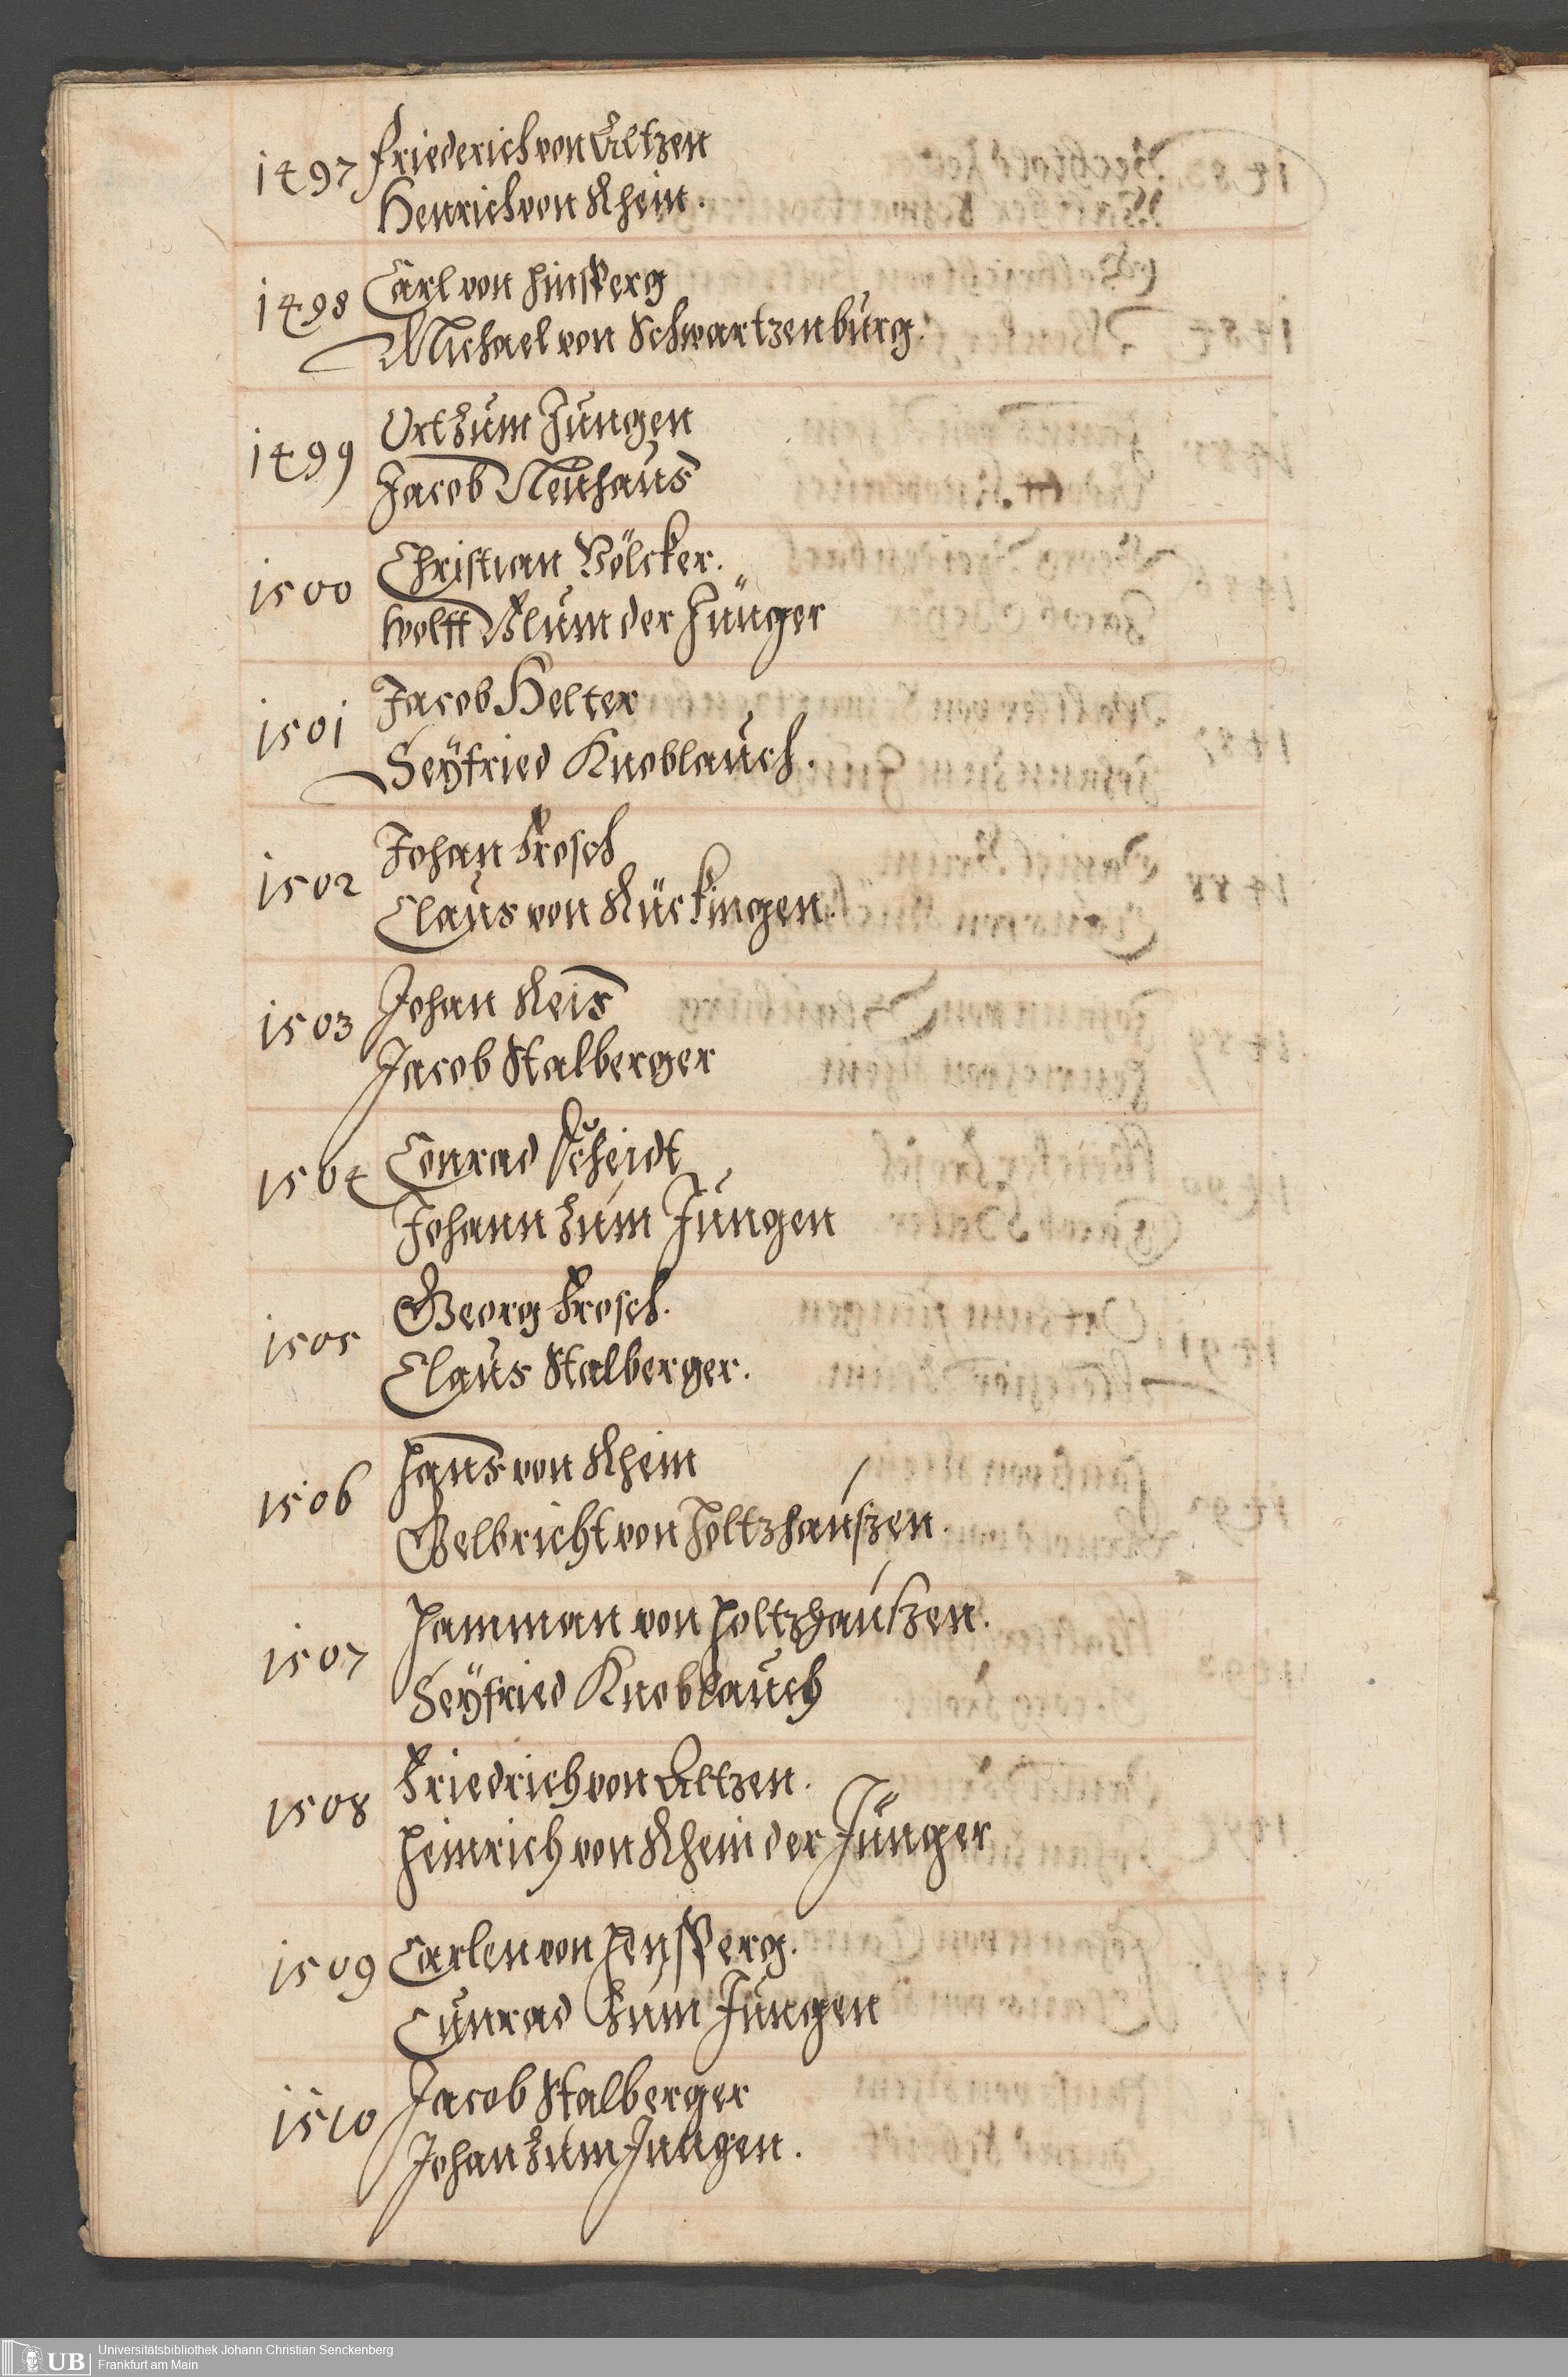 1497 Friederich von Altzen
Henrich von Rhein.
1498 Carl von Hinsperg
Michael von Schwartzenburg.
1499 Ort zum Jungen
Jacob Neuhaus
1500 Christian Völcker.
Wolff Blum der Jünger
1501 Jacob Helter
Seÿfried Knoblauch.
1502 Johan Frosch
Claus von Rückingen.
1503 Johan Reis
Jacob Stalberger
1504 Conrad Scheidt
Johann zum Jungen
1505 Georg Frosch.
Claus Stalberger.
1506 Hans von Rhein
Gelbricht von Holtzhauszen.
1507 Hamman von Holtzhauszen.
Seÿfried Knoblauch
1508 Friedrich von Altzen.
Heinrich von Rhein der Jünger
1509 Carlen von Hensperg.
Cunrad zum Jungen
1510 Jacob Stalberger
Johan zum Jungen.
UB Universitätsbibliothek Johann Christian Senckenberg
Frankfurt am Main